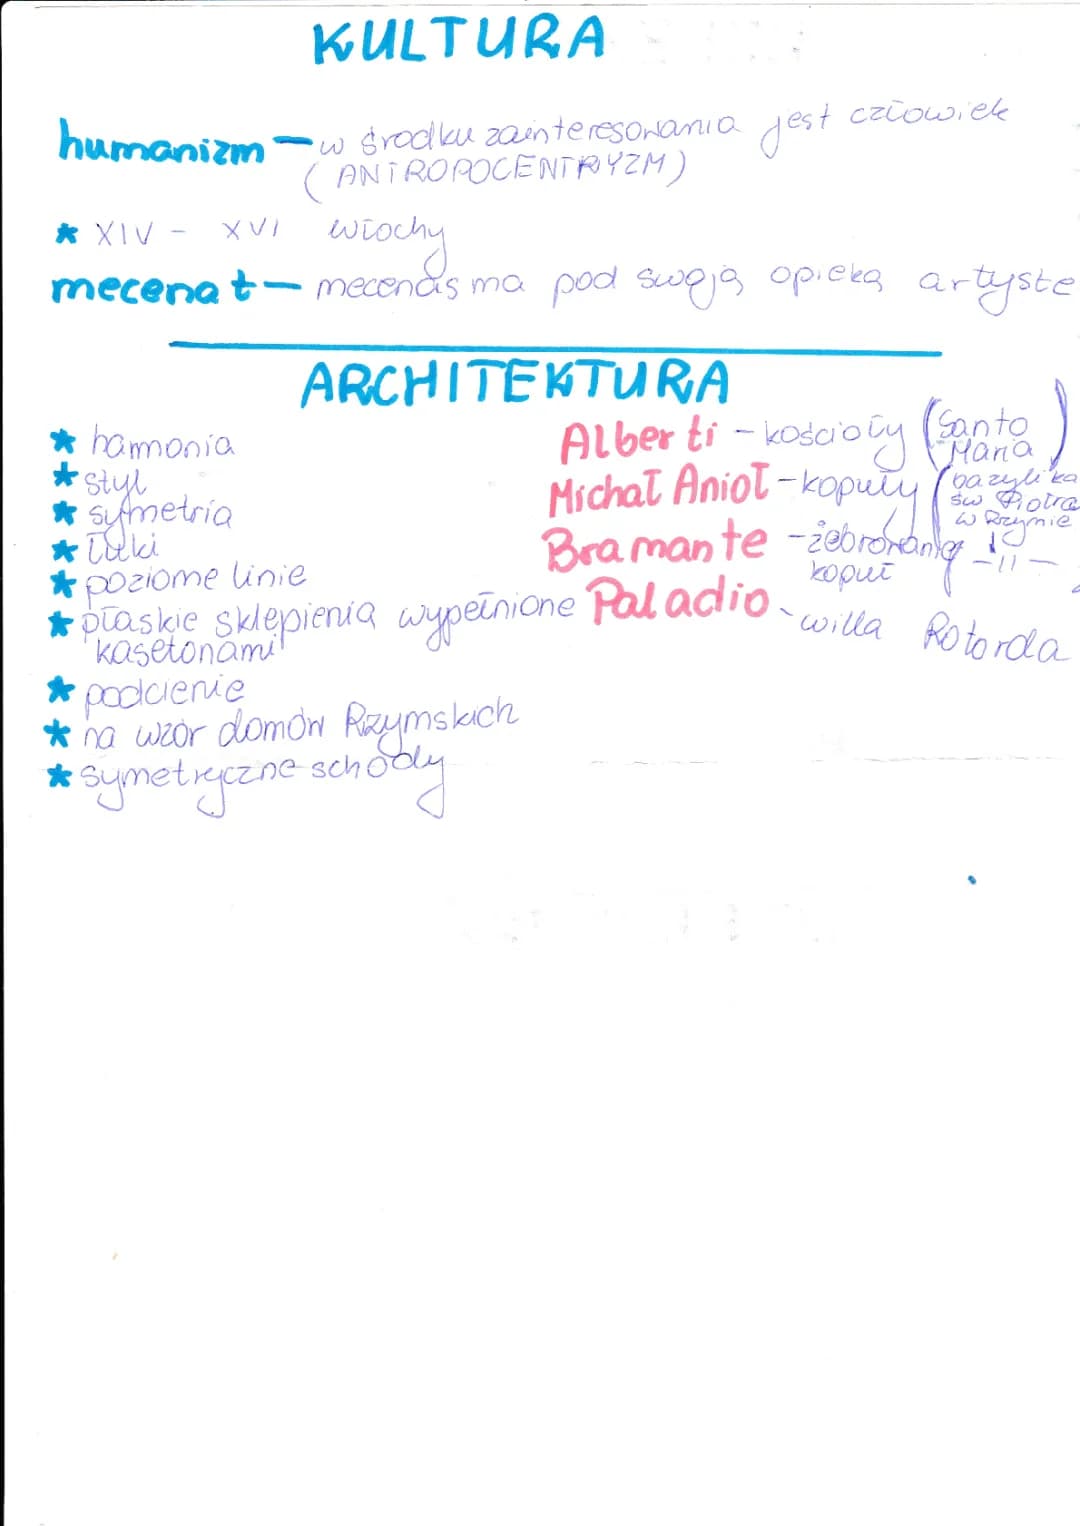 KULTURA
humanizm - w środku zainteresowania jest człowiek
(ANTROPOCENTRYZM)
* XIV - XVI włochy
mecenat - mecenas ma pod swoją opieką artyste
ARCHITEKTURA
* harmonia
* styl
* symetria
* łuki
* poziome linie
* płaskie sklepienia wypełnione
kasetonami
* podcienie
* na wzór domów Rzymskich
* symetryczne schody
Alberti - kościoły (Santo
Maria)
Michał Anioł - kopuły (bazylika
św Piotra
w Rzymie
Bramante - żebrowanie -11-
kopuł
Paladio - willa Rotorda